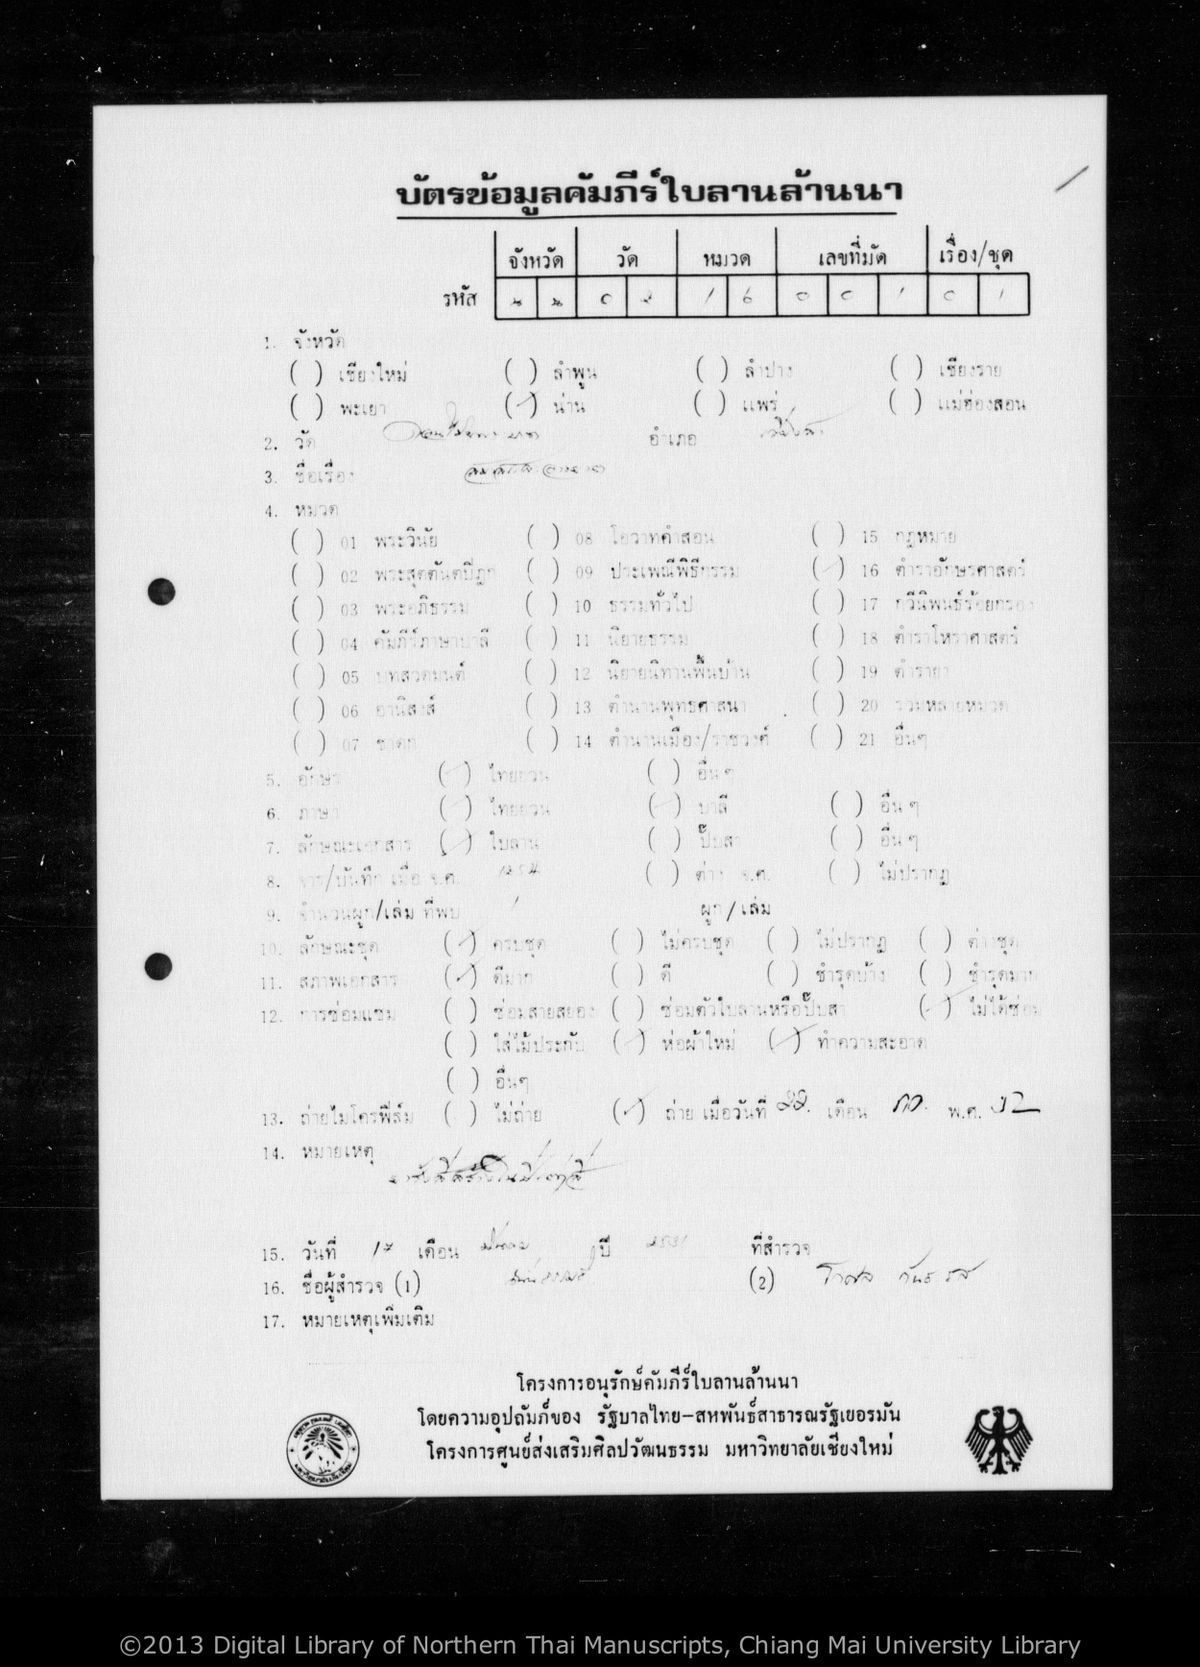 บัตรข้อมูลคัมภีร์ใบลานล้านนา
จังหวัด วัด หมวด เลขที่มัด เรื่อง/ชุด
รหัส น น 0 2 1 6 0 0 1 0 1
1. จังหวัด
( ) เชียงใหม่ ( ) ลำพูน ( ) ลำปาง ( ) เชียงราย
( ) พะเยา (✓) น่าน ( ) แพร่ ( ) แม่ฮ่องสอน
2. วัด อำเภอ
3. ชื่อเรื่อง
4. หมวด
( ) 01 พระวินัย ( ) 08 โอวาทคำสอน ( ) 15 กฎหมาย
( ) 02 พระสุตตันตปิฎก ( ) 09 ประเพณีพิธีกรรม (✓) 16 ตำราอักษรศาสตร์
( ) 03 พระอภิธรรม ( ) 10 ธรรมทั่วไป ( ) 17 กวีนิพนธ์ร้อยกรอง
( ) 04 คัมภีร์ภาษาบาลี ( ) 11 นิยายธรรม ( ) 18 ตำราโหราศาสตร์
( ) 05 บทสวดมนต์ ( ) 12 นิยายนิทานพื้นบ้าน ( ) 19 ตำรายา
( ) 06 อานิสงส์ ( ) 13 ตำนานพุทธศาสนา ( ) 20 รวมหลายหมวด
( ) 07 ชาดก ( ) 14 ตำนานเมือง/ราชวงศ์ ( ) 21 อื่นๆ
5. อักษร (✓) ไทยยวน ( ) อื่น ๆ
6. ภาษา (✓) ไทยยวน (✓) บาลี ( ) อื่น ๆ
7. ลักษณะเอกสาร (✓) ใบลาน ( ) ปั๊บสา ( ) อื่น ๆ
8. จาร/บันทึก เมื่อ จ.ศ. ( ) ต่าง จ.ศ. ( ) ไม่ปรากฏ
9. จำนวนผูก/เล่ม ที่พบ 1 ผูก/เล่ม
10. ลักษณะชุด (✓) ครบชุด ( ) ไม่ครบชุด ( ) ไม่ปรากฏ ( ) ต่างชุด
11. สภาพเอกสาร (✓) ดีมาก ( ) ดี ( ) ชำรุดบ้าง ( ) ชำรุดมาก
12. การซ่อมแซม ( ) ซ่อมสายสยอง ( ) ซ่อมตัวใบลานหรือปั๊บสา (✓) ไม่ได้ซ่อม
( ) ใส่ไม้ประกับ (✓) ห่อผ้าใหม่ (✓) ทำความสะอาด
( ) อื่นๆ
13. ถ่ายไมโครฟิล์ม ( ) ไม่ถ่าย (✓) ถ่าย เมื่อวันที่ 22. เดือน กค. พ.ศ. 32
14. หมายเหตุ
15. วันที่ 17 เดือน มีนาคม ปี 2531 ที่สำรวจ
16. ชื่อผู้สำรวจ (1) (2)
17. หมายเหตุเพิ่มเติม
โครงการอนุรักษ์คัมภีร์ใบลานล้านนา
โดยความอุปถัมภ์ของ รัฐบาลไทย-สหพันธ์สาธารณรัฐเยอรมัน
โครงการศูนย์ส่งเสริมศิลปวัฒนธรรม มหาวิทยาลัยเชียงใหม่
©2013 Digital Library of Northern Thai Manuscripts, Chiang Mai University Library